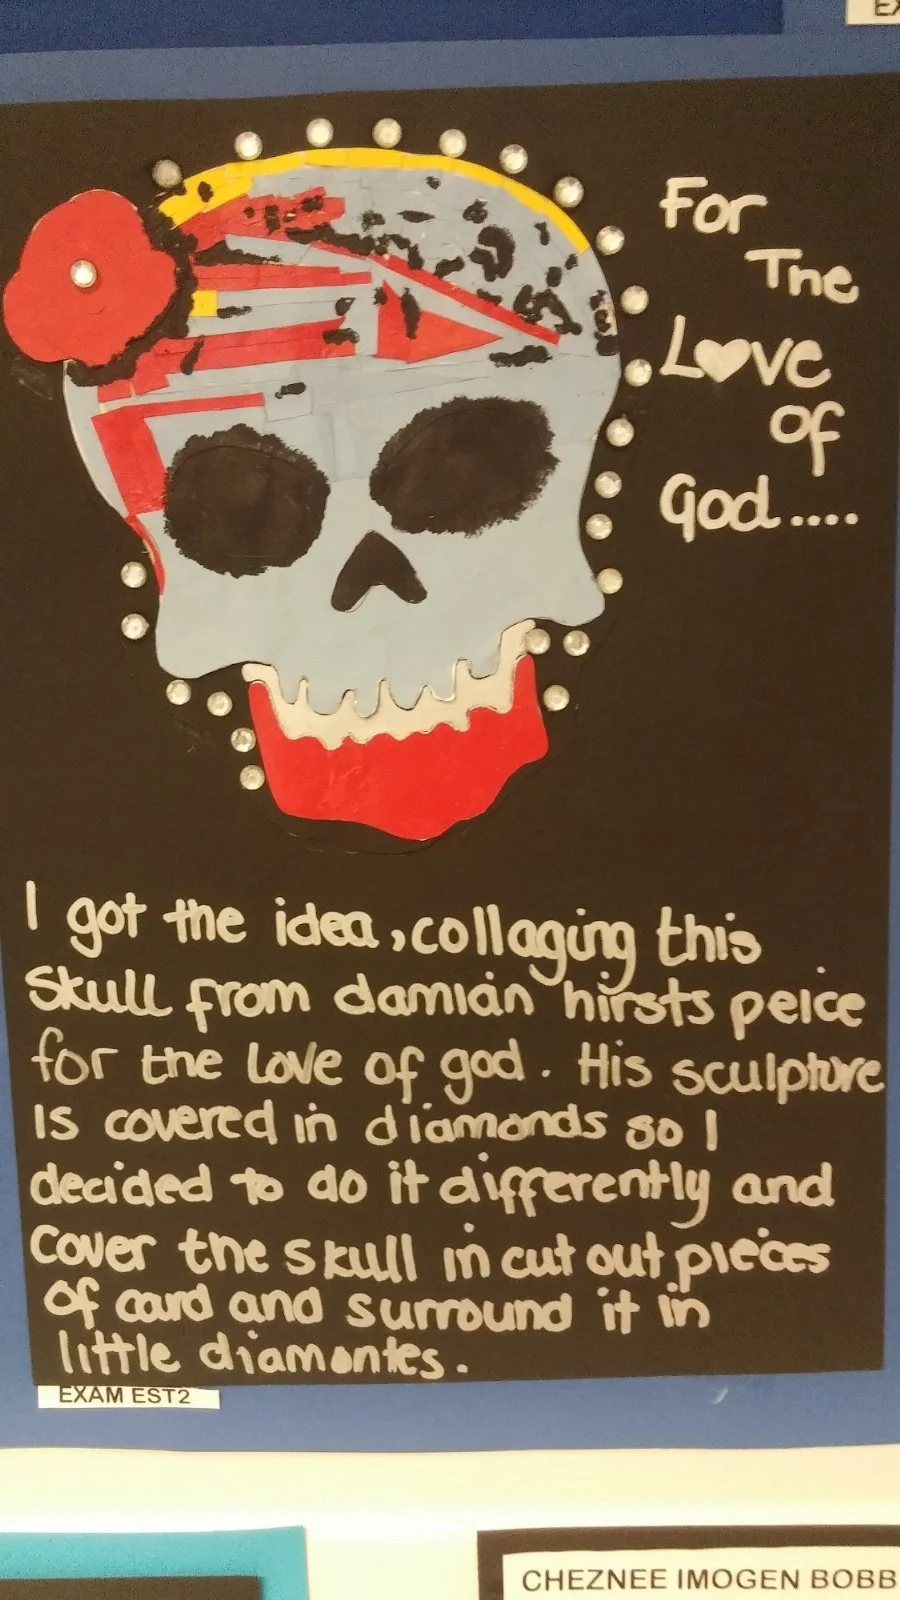 For
The
Love
of
God....
I got the idea, collaging this
skull from damian hirsts peice
for the love of god. His sculpture
is covered in diamonds so I
decided to do it differently and
cover the skull in cut out pieces
of card and surround it in
little diamontes.
EXAM EST2
CHEZNEE IMOGEN BOBB